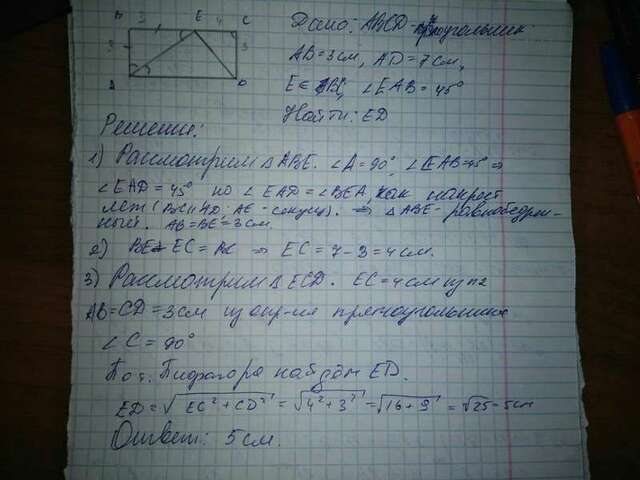 B 3 E 4 C
3 3
A D
Дано: ABCD - прямоугольник
AB = 3см, AD = 7см,
E ∈ BC, ∠EAB = 45°
Найти: ED
Решение:
1) Рассмотрим △ABE. ∠A = 90°, ∠EAB = 45° ⇒
∠EAD = 45° но ∠EAD = ∠BEA, как накрест
лет (BC || AD; AE - секущ). ⇒ △ABE - равнобедрен-
ный. AB = BE = 3см.
2) BE + EC = BC ⇒ EC = 7 - 3 = 4см.
3) Рассмотрим △ECD. EC = 4см из п2
AB = CD = 3см из опр-ия прямоугольника
∠C = 90°
По т. Пифагора найдём ED.
ED = √EC² + CD² = √4² + 3² = √16 + 9 = √25 = 5см
Ответ: 5см.